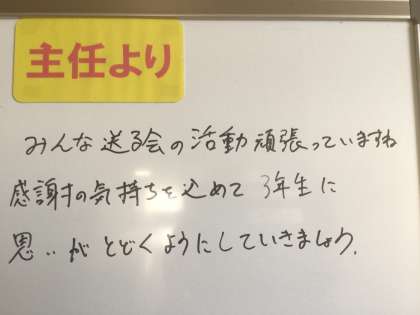 主任より
みんな送る会の活動頑張っていますね
感謝の気持ちを込めて 3年生に
思いがとどくようにしていきましょう.